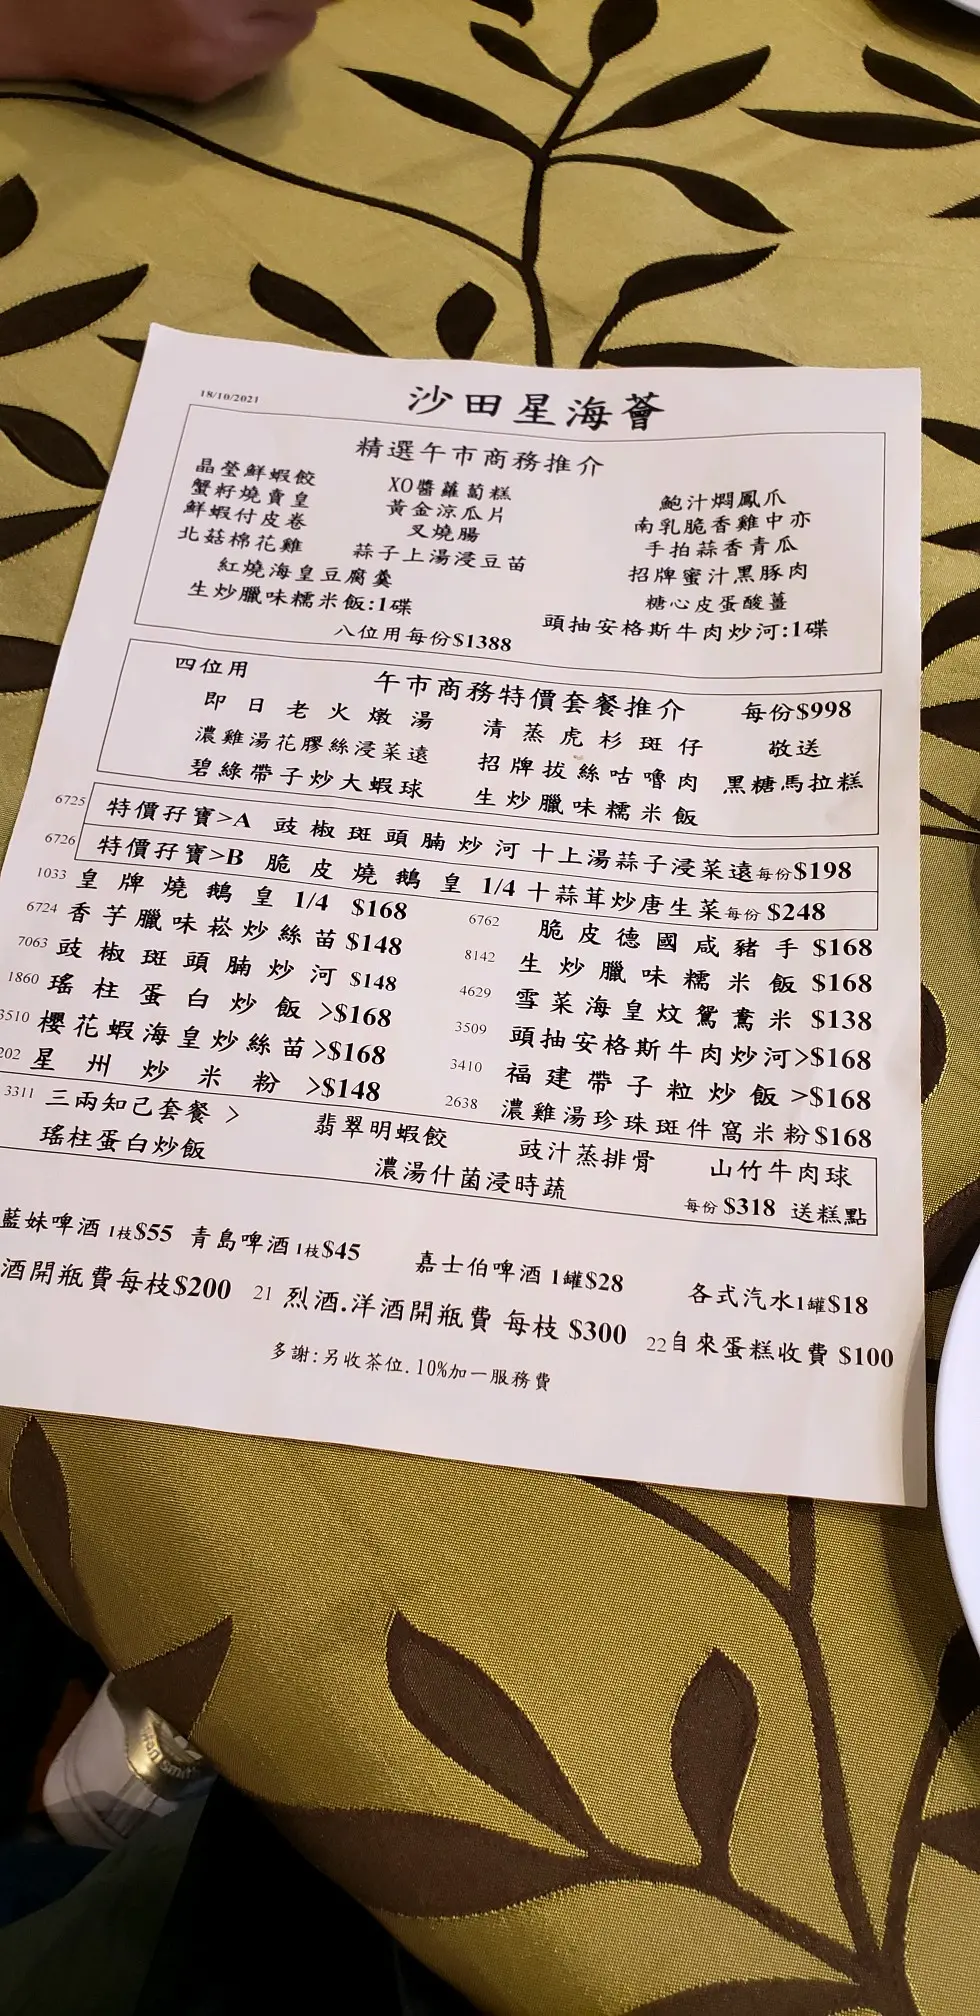 18/10/2021
沙田星海薈
精選午市商務推介
晶瑩鮮蝦餃 XO醬蘿蔔糕 鮑汁燜鳳爪
蟹籽燒賣皇 黃金涼瓜片 南乳脆香雞中亦
鮮蝦付皮卷 叉燒腸 手拍蒜香青瓜
北菇棉花雞 蒜子上湯浸豆苗 招牌蜜汁黑豚肉
紅燒海皇豆腐羹 糖心皮蛋酸薑
生炒臘味糯米飯:1碟 頭抽安格斯牛肉炒河:1碟
八位用每份$1388
四位用 午市商務特價套餐推介 每份$998
即日老火燉湯 清蒸虎杉斑仔 敬送
濃雞湯花膠絲浸菜遠 招牌拔絲咕嚕肉 黑糖馬拉糕
碧綠帶子炒大蝦球 生炒臘味糯米飯
6725 特價孖寶>A 豉椒斑頭腩炒河十上湯蒜子浸菜遠每份$198
6726 特價孖寶>B 脆皮燒鵝皇 1/4 十蒜茸炒唐生菜每份 $248
1033 皇牌燒鵝皇 1/4 $168 6762 脆皮德國咸豬手 $168
6724 香芋臘味崧炒絲苗 $148 8142 生炒臘味糯米飯 $168
7063 豉椒斑頭腩炒河 $148 4629 雪菜海皇炆鴛鴦米 $138
1860 瑤柱蛋白炒飯 >$168 3509 頭抽安格斯牛肉炒河>$168
3510 櫻花蝦海皇炒絲苗>$168 3410 福建帶子粒炒飯 >$168
202 星州炒米粉 >$148 2638 濃雞湯珍珠斑件窩米粉$168
3311 三兩知己套餐 > 翡翠明蝦餃 豉汁蒸排骨 山竹牛肉球
瑤柱蛋白炒飯 濃湯什菌浸時蔬 每份 $318 送糕點
藍妹啤酒 1枝$55 青島啤酒 1枝$45 嘉士伯啤酒 1罐$28 各式汽水1罐$18
酒開瓶費每枝$200 21 烈酒.洋酒開瓶費 每枝 $300 22自來蛋糕收費 $100
多謝:另收茶位.10%加一服務費